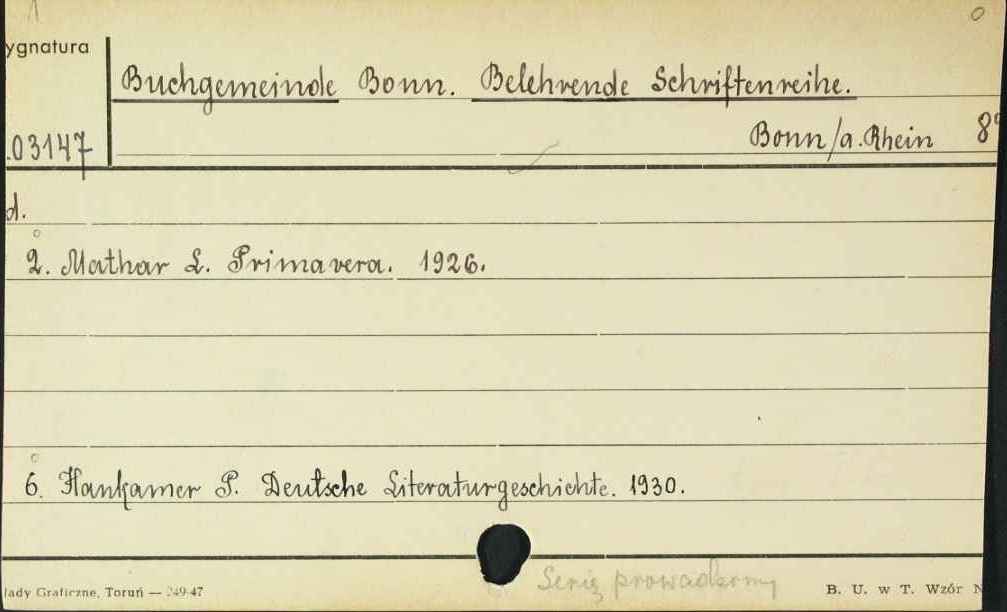 ygnatura
Buchgemeinde Bonn. Belehrende Schriftenreihe.
.03147
Bonn/a.Rhein 8°
d.
2. Mathar L. Primavera. 1926.
6. Hankamer P. Deutsche Literaturgeschichte. 1930.
Serię prowadzomy
lady Graficzne, Toruń — 249-47
B. U. w T. Wzór N